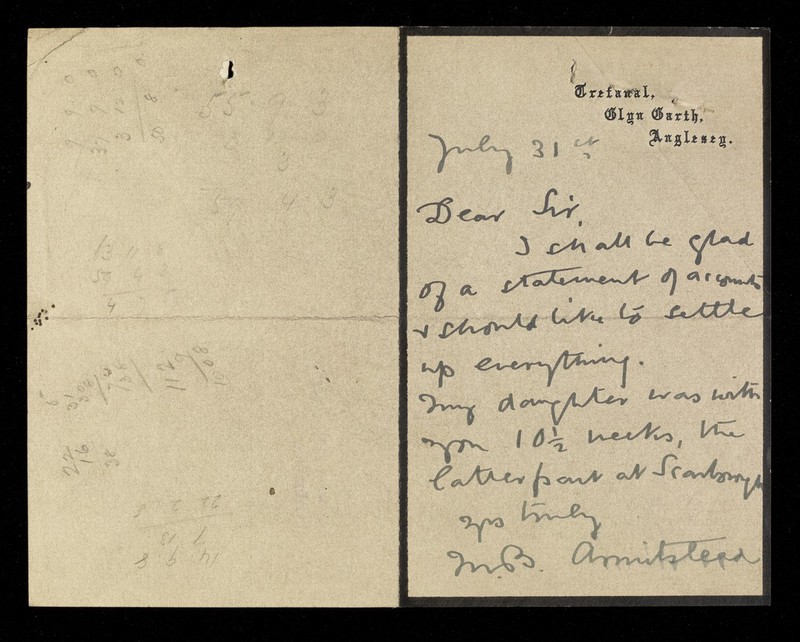 Trefanal,
Glyn Garth,
Anglesey.
July 31st
Dear Sir,
I shall be glad
of a statement of accounts
& should like to settle
up everything.
My daughter was with
you 10½ weeks, the
latter part at Scarborough
yrs truly
M.B. Armitstead
55 9 3
3
5 4 3
13 11
58 4
4
22
16
22 2 8
14 9 8